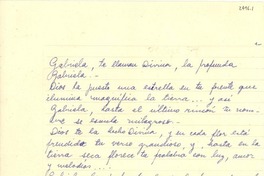 Gabriela, te llaman Divina, la profunda
Gabriela.-
Dios ha puesto una estrella en tu frente que
ilumina magnífica la tierra... y así
Gabriela, hasta el último rincón tu nom-
bre se vuelve milagroso.-
Dios te ha hecho Divina, y en cada flor está
prendido tu verso grandioso, y hasta en la
tierra seca florece tu palabra con luz, amor
y melodías...